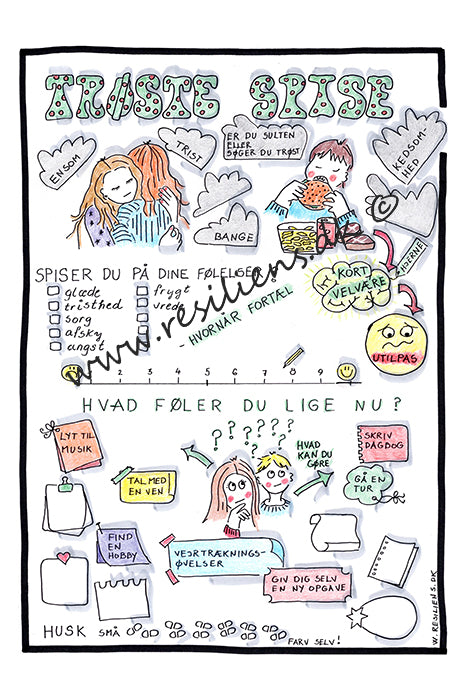 TRØSTE SPISE
ENSOM
TRIST
ER DU SULTEN
ELLER
SØGER DU TRØST
KEDSOM-
HED
BANGE
©
HJERNE
KORT
VELVÆRE
UTILPAS
SPISER DU PÅ DINE FØLELSER?
glæde
tristhed
sorg
afsky
angst
frygt
vrede
- HVORNÅR FORTÆL
www.resiliens.dk
2 3 4 5 6 7 8 9
HVAD FØLER DU LIGE NU?
LYT TIL
MUSIK
? ? ? ? ? ? ? ?
HVAD
KAN DU
GØRE
SKRIV
DAGBOG
TAL MED
EN VEN
GÅ EN
TUR
FIND
EN
HOBBY
VEJRTRÆKNINGS-
ØVELSER
GIV DIG SELV
EN NY OPGAVE
HUSK SMÅ
FARV SELV!
W.RESILIENS.DK